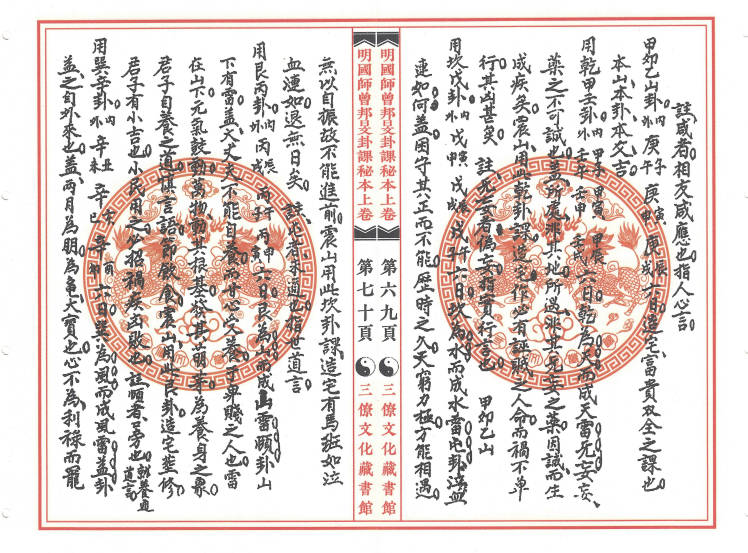 註咸者相友咸應也指人心言
甲卯乙山卦內庚子庚寅庚辰六日造宅富貴双全之課也
外庚午庚申庚戌
本山本卦本文言
用乾甲壬卦內甲子甲寅甲辰六日乾為天而成天雷无妄妄
外壬午壬申壬戌
藥之不可試也蓋所處非其地所遇非其无妄之藥因試而生
成疾矣震山用此乾卦課造宅作心有誣賊之人命而禍不单
行其凶甚矣 註无妄者偽妄指實行言也 甲卯乙山
用坎戊卦內戊寅戊辰戊午六日坎為水而成水雷屯卦泣血
外戊申戊戌戊子
連如何蓋困守其正而不能歷時之久天窮力極方能相遇
明國師曾邦旻卦課秘本上卷
第六九頁
三僚文化藏書館
明國師曾邦旻卦課秘本上卷
第七十頁
三僚文化藏書館
無以自振故不能進前震山用此坎卦課造宅有馬班如泣
血漣如退無日矣 註屯者求通也指世道言
用艮丙卦內丙辰丙午丙申六日艮為山而成山雷頤卦山
外丙戌丙子丙寅
下有雷蓋大丈夫不能自養而甘心又養于卑賤之人也雷
在山下元氣鼓動萬物動其根荄其萌芽為養身之象
君子自養之道慎言語節飲食震山用此艮卦造宅塋修
君子有小吉也小民用之必招禍疾凶敗也註頤者養也就養道言
用巽辛卦內辛丑辛亥辛酉六日巽為風而成風雷益卦
外辛未辛巳辛卯
益之自外來也蓋兩月為朋為龜大寶也心不為利祿而罷